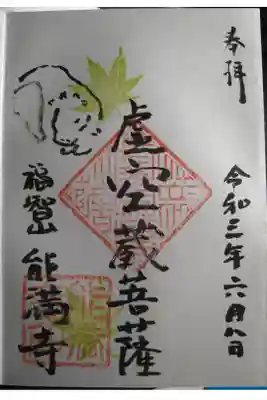 奉拝
令和三年六月八日
虚空蔵菩薩
福聚山 能満寺